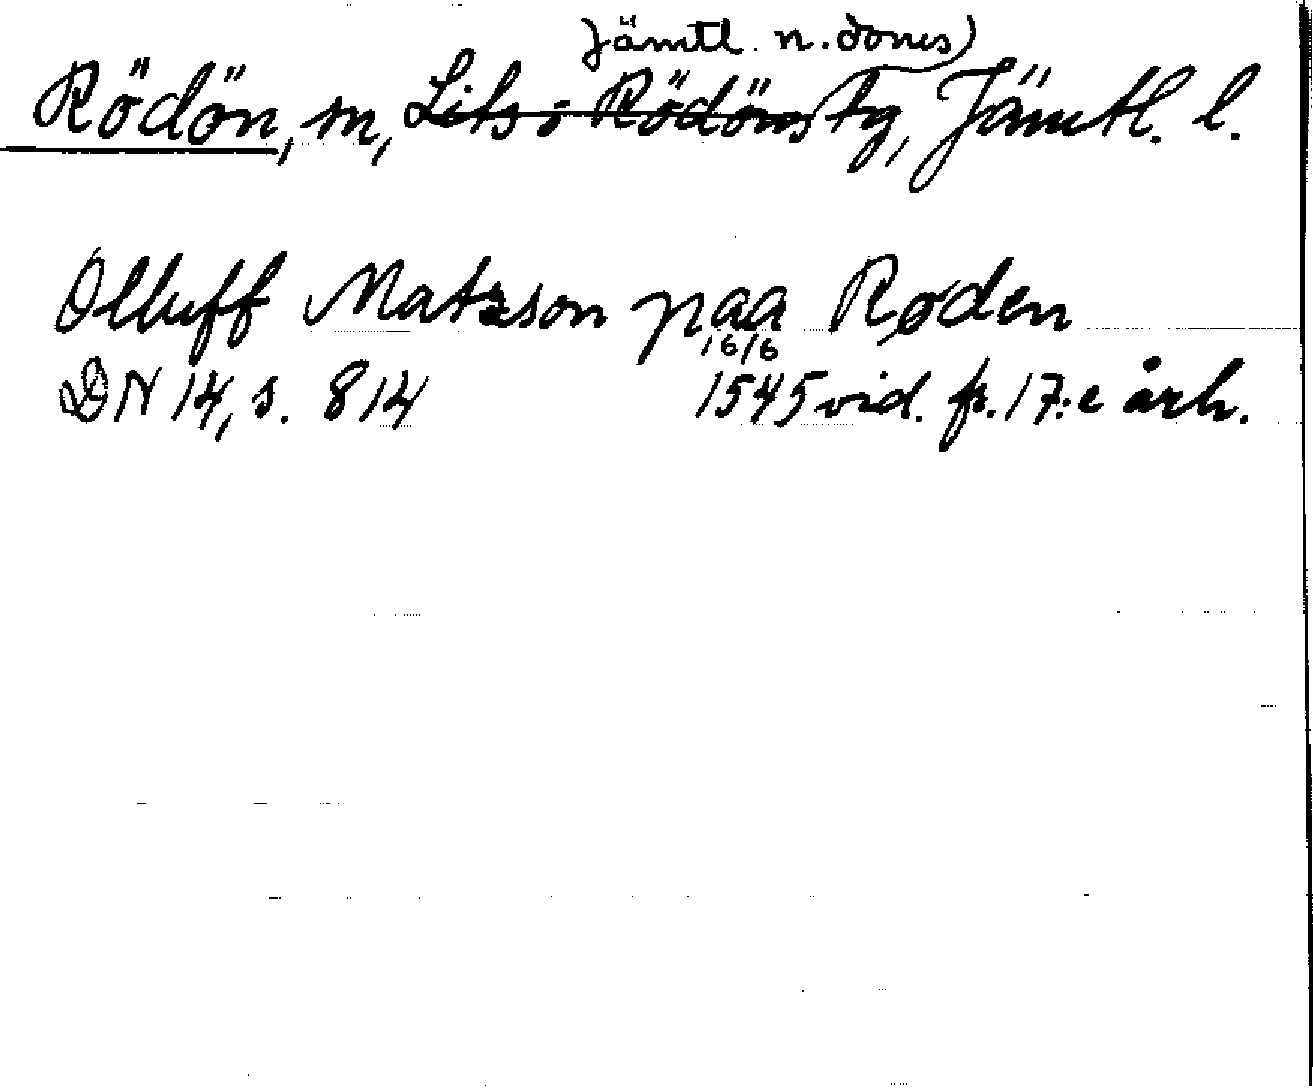 Jämtl. n. doms)
Rödön, sn, Lits o Rödöns tg, Jämtl. l.
Olluff Matzson paa Røden
16/6
DN 14, s. 814 1545 vid. fr. 17:e årh.